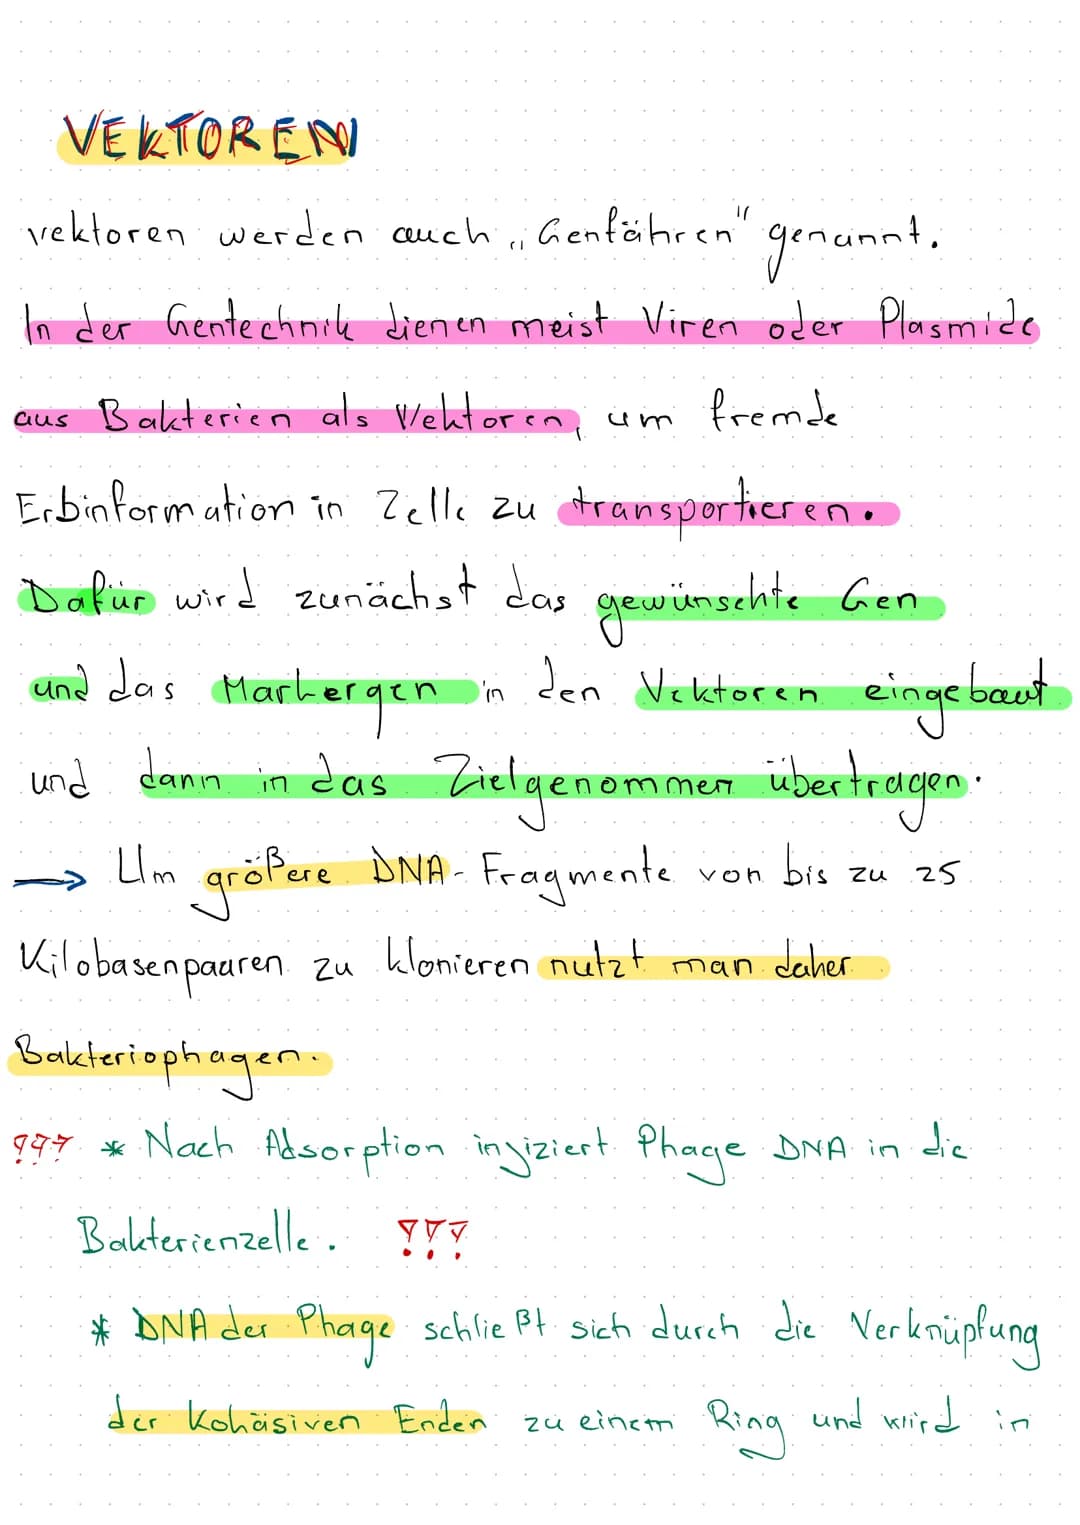 VEKTOREN
vektoren werden auch „Genfähren" genannt.
In der Gentechnik dienen meist Viren oder Plasmide
aus Bakterien als Vektoren, um fremde
Erbinformation in Zelle zu transportieren.
Dafür wird zunächst das gewünschte Gen
und das Markergen in den Vektoren eingebaut
und dann in das Zielgenommen übertragen.
→ Um größere DNA-Fragmente von bis zu 25
Kilobasenpaaren zu klonieren nutzt man daher
Bakteriophagen.
!!! * Nach Adsorption injiziert Phage DNA in die
Bakterienzelle. !!!
* DNA der Phage schließt sich durch die Verknüpfung
der Kohäsiven Enden zu einem Ring und wird in